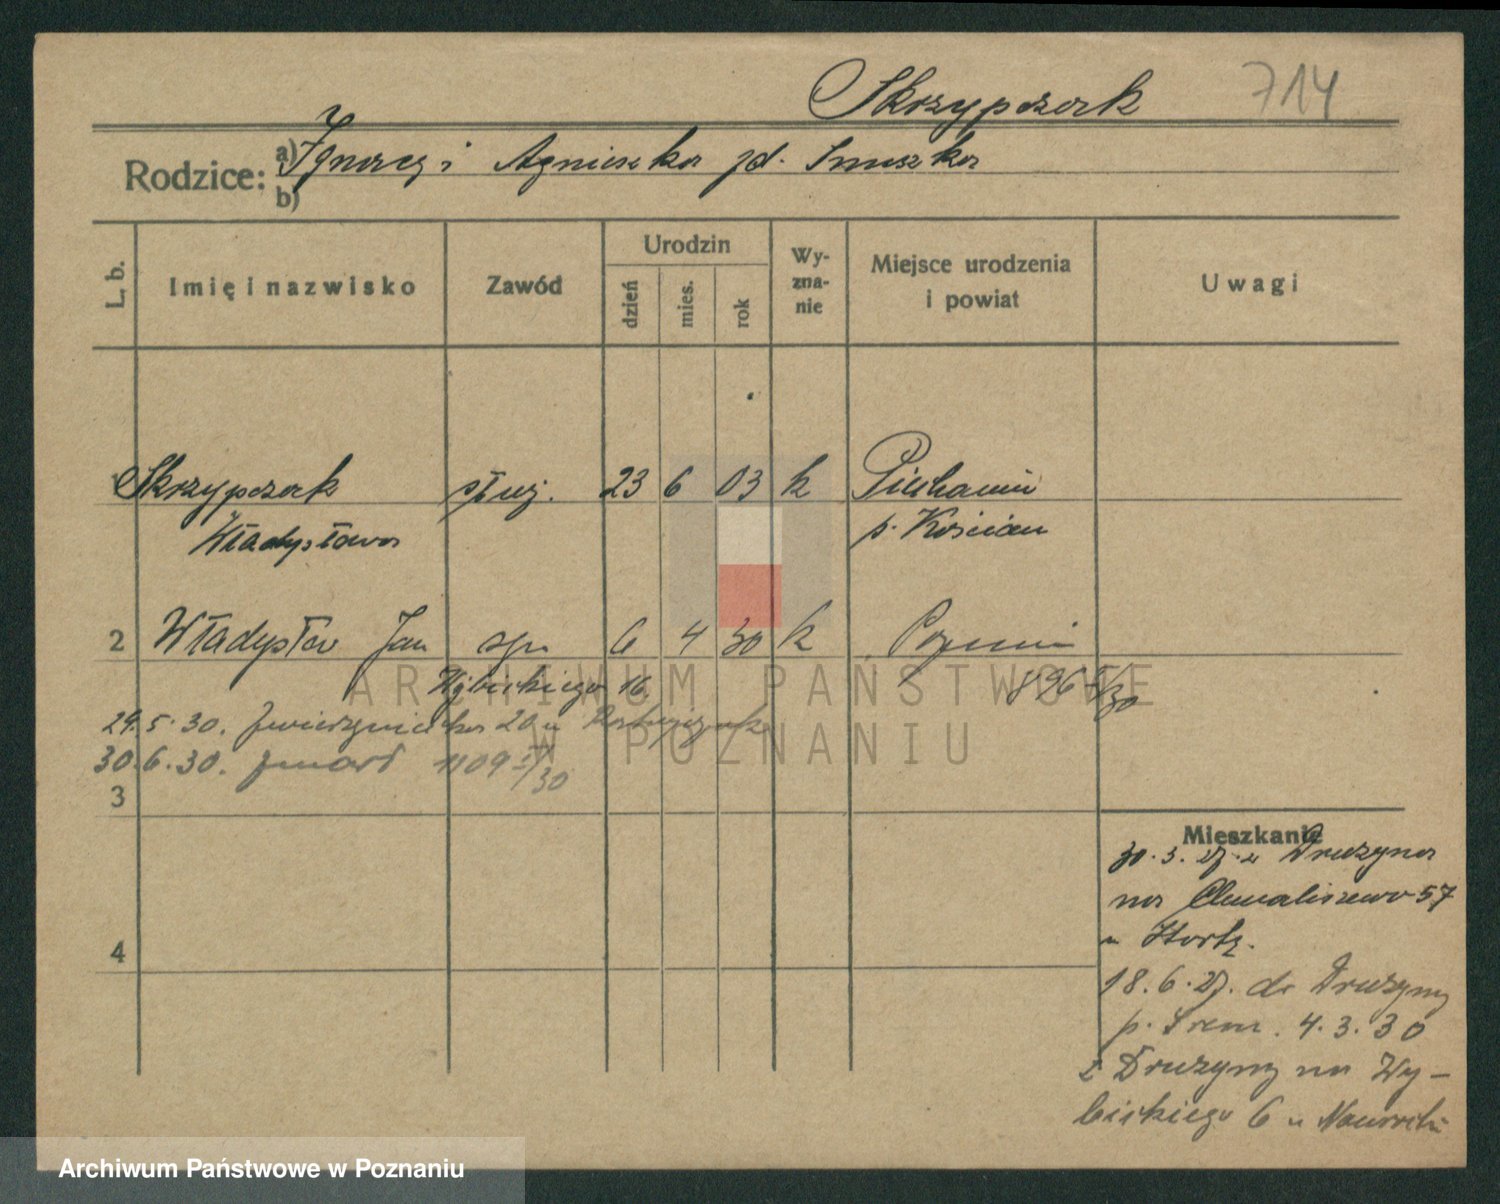 Skrzypczak 714
Rodzice: a) Ignacy i Agnieszka zd. Smuszka
b)
L. b. Imię i nazwisko Zawód Urodzin dzień mies. rok Wy-zna-nie Miejsce urodzenia i powiat Uwagi
1 Skrzypczak służ. 23 6 03 k Piechanin
Władysława p. Kościan
2 Władysław Jan syn 6 4 30 k Poznań
Wybickiego 16 896 /30
29.5.30. Zwierzyniecka 20 u
30.6.30. zmarł 1109 /30
3
Mieszkanie
30.3.27. z Drużyna
na Chwaliszewo 57
u
4
18.6.27. do Drużyny
p. Śrem. 4.3.30
z Drużyny na Wy-
bickiego 6 u
ARCHIWUM PAŃSTWOWE
W POZNANIU
Archiwum Państwowe w Poznaniu